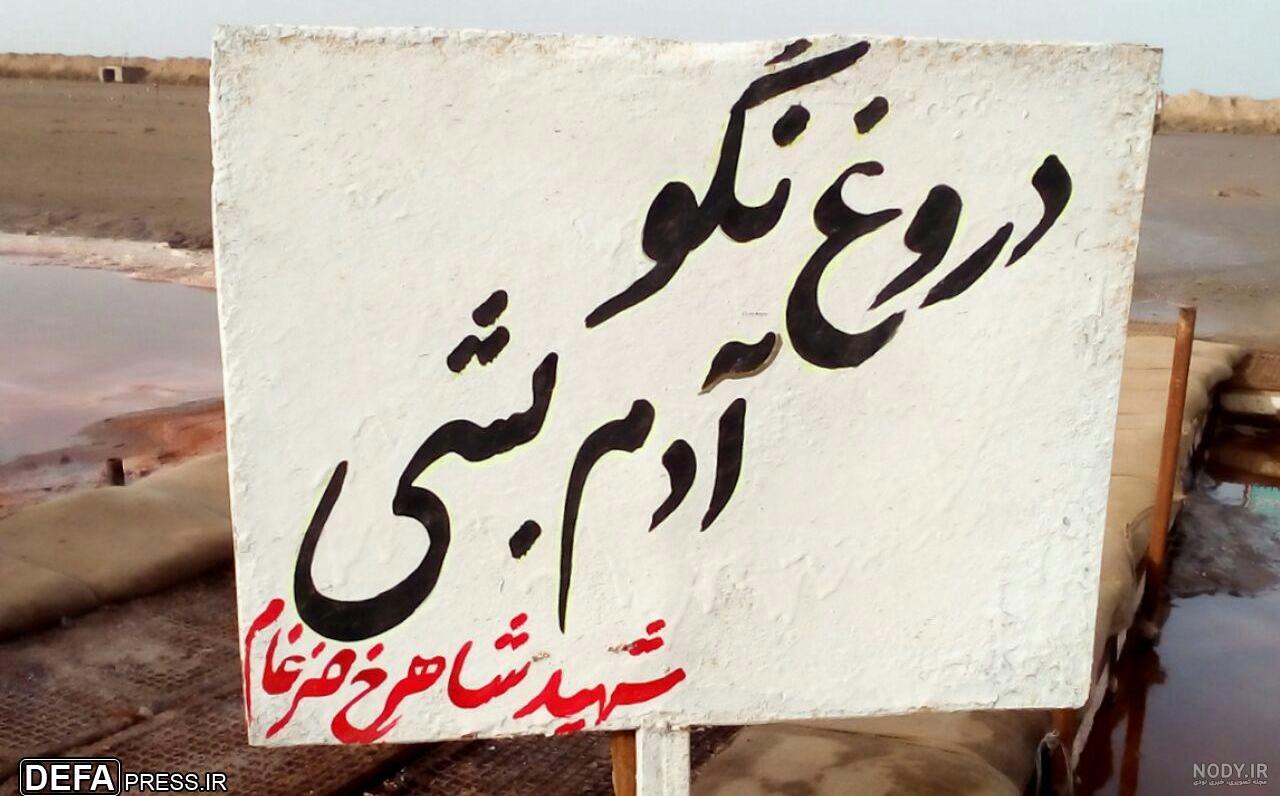 دروغ نگو
آدم بشی
شهید شاهرخ ضرغام
DEFAPRESS.IR
NODY.IR